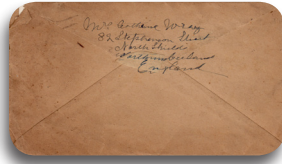 Mrs Arthur Wray
82 Stephenson Street
North Shields
Northumberland
England